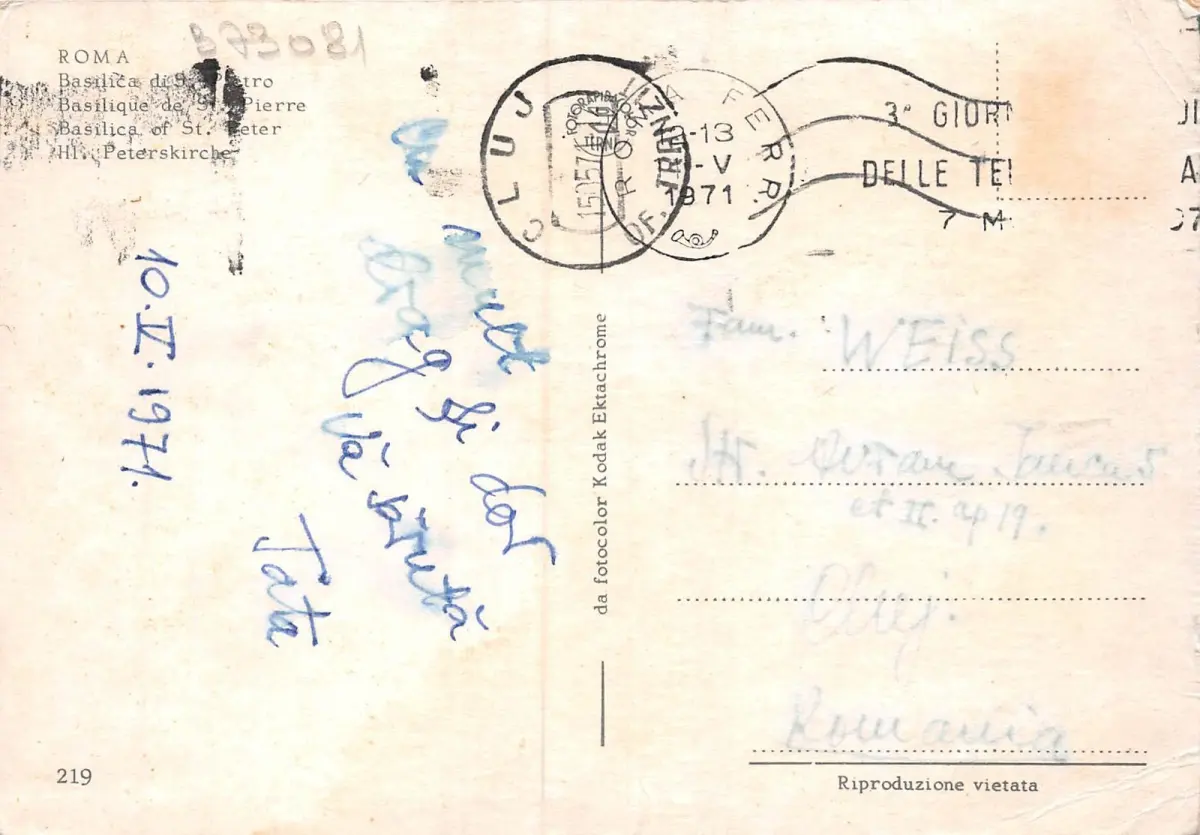 B73081
ROMA
Basilica di S. Pietro
Basilique de St. Pierre
Basilica of St. Peter
Hl. Peterskirche
10.V.1971.
Cu mult
drag și dor
Vă sărută
Tata
CLUJ
OF. TRANZ
ROMA FERR.
-13
-V
1971
3ª GIOR
DELLE TE
7 M
da fotocolor Kodak Ektachrome
Fam. WEISS
Str. Avram Iancu 5
et II. ap 19.
Cluj.
Romania
219
Riproduzione vietata